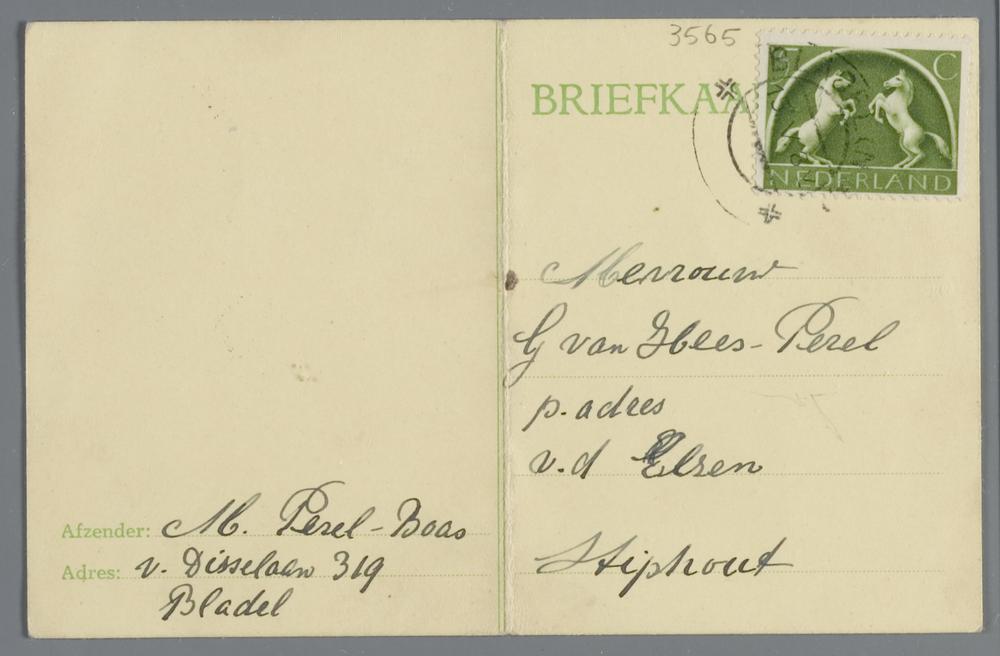 3565
BRIEFKAA
C
NEDERLAND
Mevrouw
G van Hees-Perel
p. adres
v.d Elsen
Stiphout
Afzender: M. Perel-Boas
Adres: v. Disselaan 319
Bladel